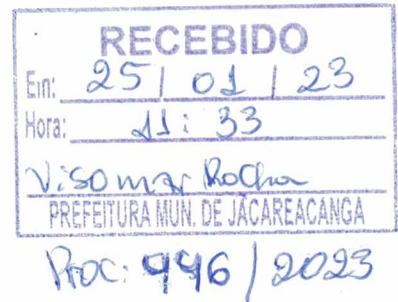 RECEBIDO
Em: 25 / 01 / 23
Hora: 11: 33
Visomar Rocha
PREFEITURA MUN. DE JACAREACANGA
Proc: 996 / 2023